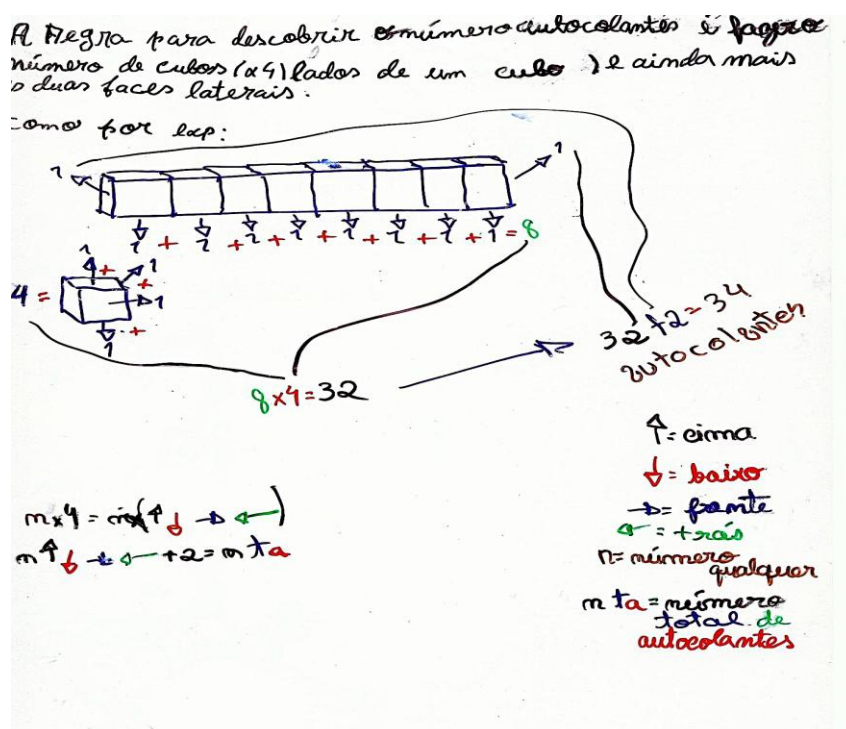 A Regra para descobrir o número autocolantes é faço o
número de cubos (x4) lados de um cubo ) e ainda mais
s duas faces laterais.
como por exp:
1 1
1 + 1 + 1 + 1 + 1 + 1 + 1 + 1 = 8
1 + 1
4 = + 1
1 +
32 + 2 = 34
autocolantes
8x4=32
↑= cima
↓= baixo
→= frente
←= trás
n= número
qualquer
n ta = número
total de
autocolantes
n x 4 = (↑ ↓ → ←)
n ↑ ↓ → ← +2 = n ta